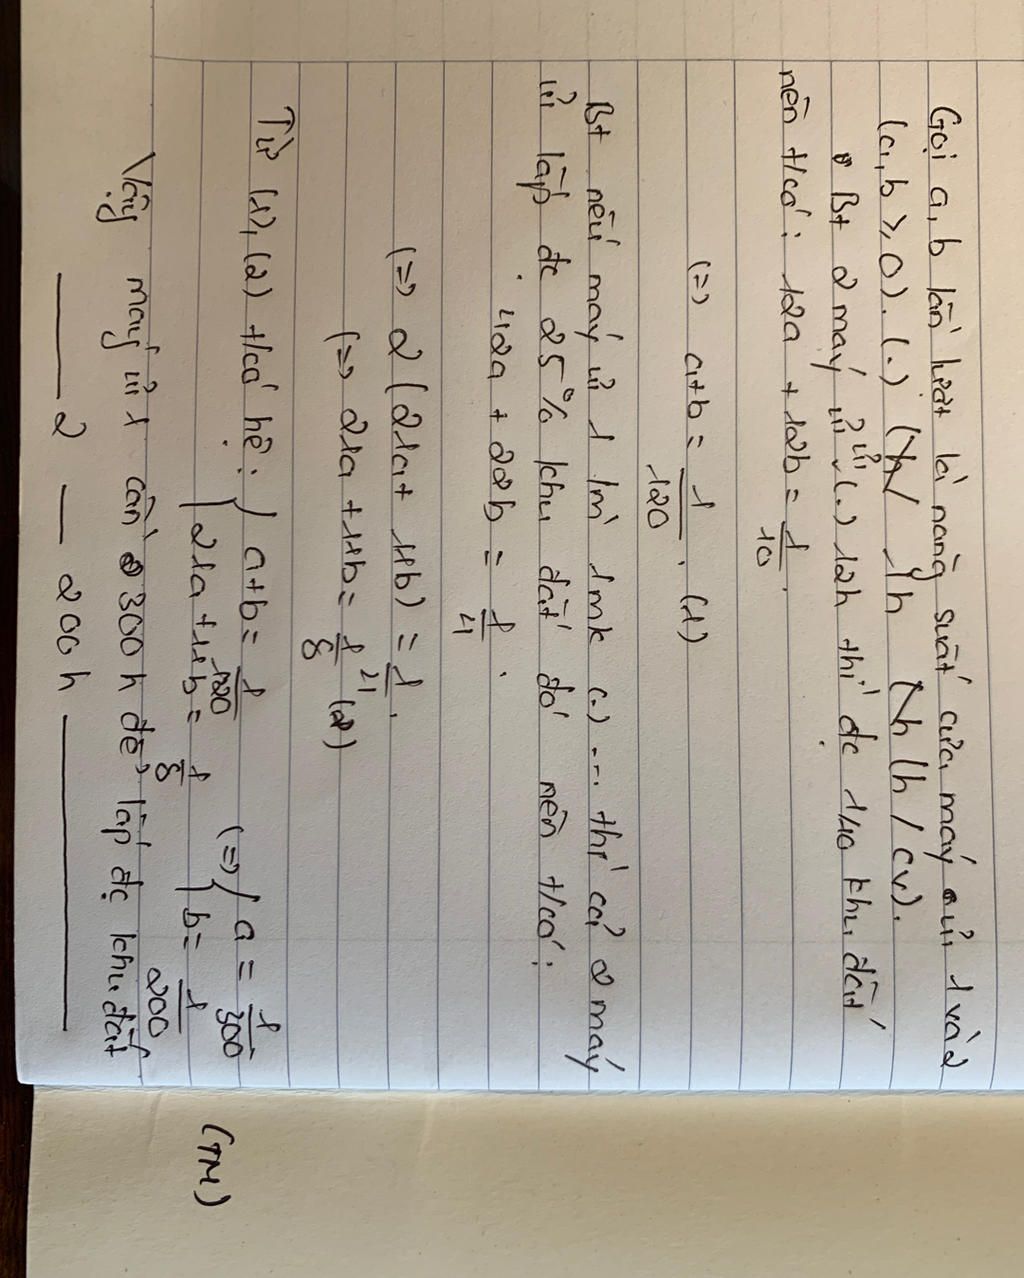 Gọi a, b lần lượt là năng suất của máy ủi 1 và 2
(a, b > 0). (.) 1h (h/cv).
Bt 2 máy ủi (.) 12h thì đc 1/10 khu đất
nên t/có: 12a + 12b = 1/10.
(=) a+b = 1/120. (1)
Bt nếu máy ủi 1 1mk (.) ... thì cả 2 máy
ủi lấp đc 25% khu đất đó nên t/có:
42a + 22b = 1/4.
(=) 2(21a + 11b) = 1/4.
(=) 21a + 11b = 1/8 (2)
Từ (1), (2) t/có hệ: { a+b = 1/120 (=) { a = 1/300
{ 21a + 11b = 1/8 { b = 1/200 (TM)
Vậy máy ủi 1 cần 300h để lấp đc khu đất
——— 2 — 200h ———